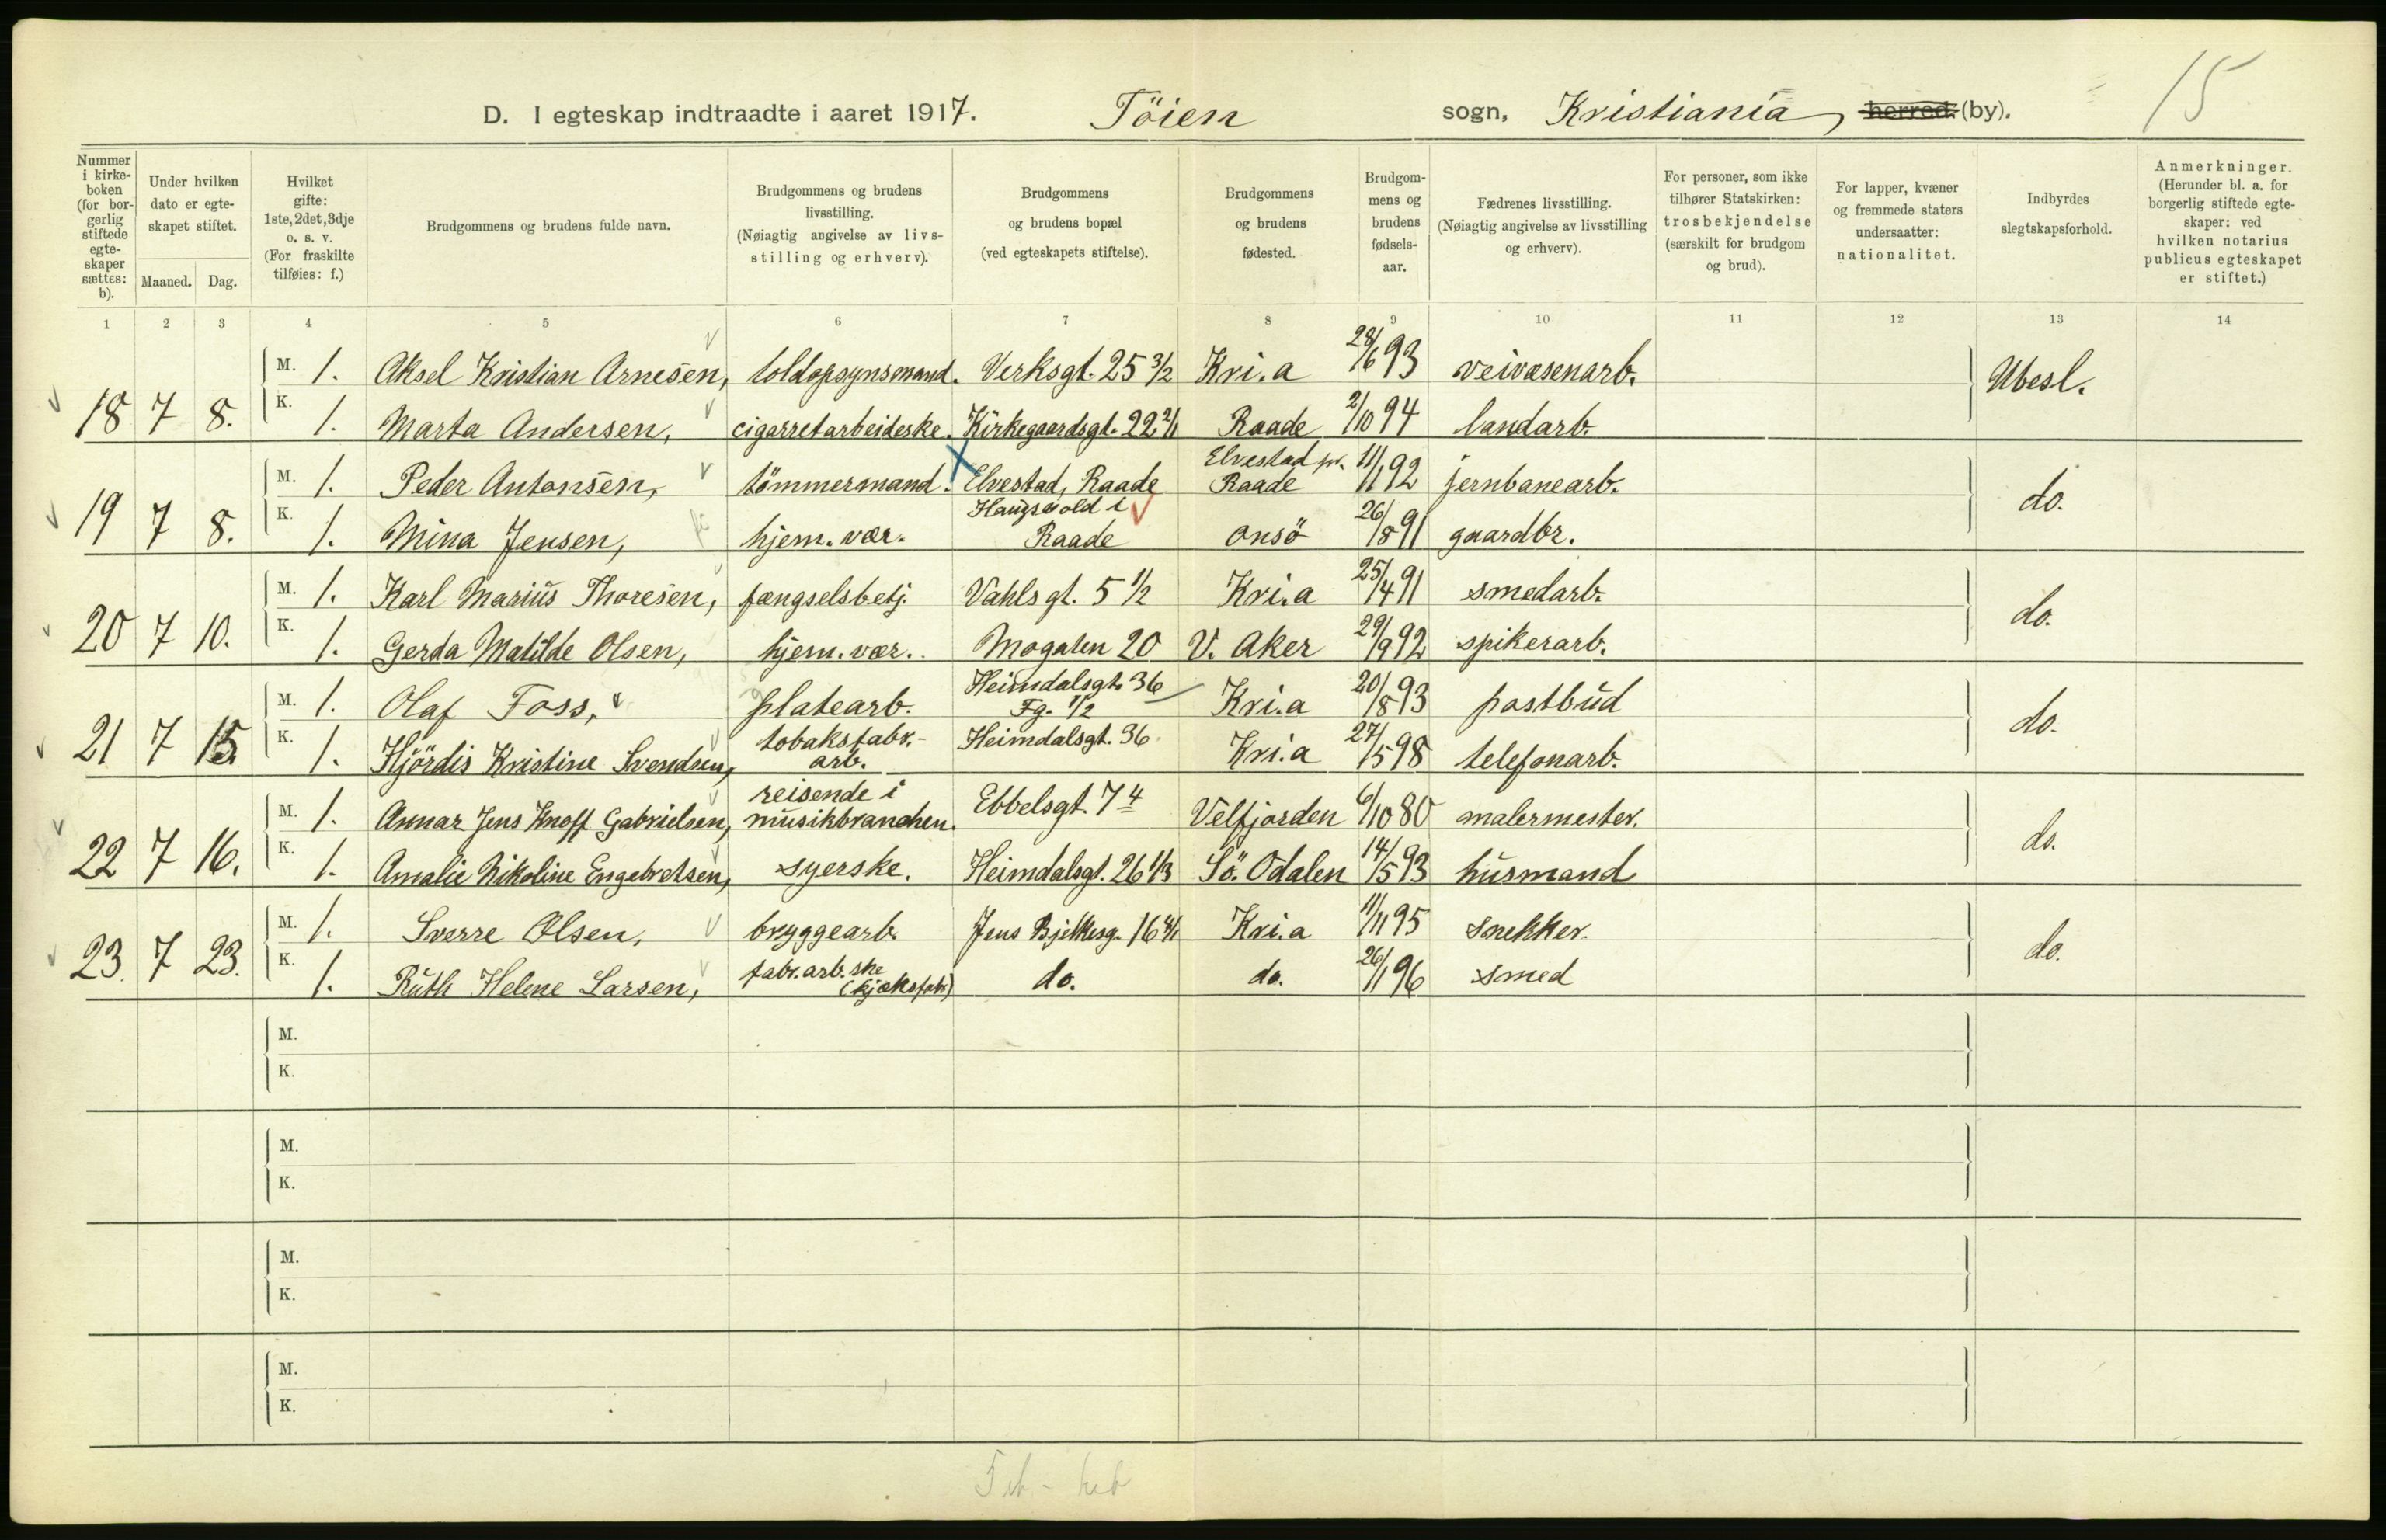 15
D. I egteskap indtraadte i aaret 1917. Töien sogn, Kristiania, herred (by).
Nummer i kirkeboken (for borgerlig stiftede egteskaper sættes: b).
Under hvilken dato er egteskapet stiftet.
Maaned. Dag.
Hvilket gifte: 1ste, 2det, 3dje o. s. v. (For fraskilte tilføies: f.)
Brudgommens og brudens fulde navn.
Brudgommens og brudens livsstilling. (Nøiagtig angivelse av livsstilling og erhverv).
Brudgommens og brudens bopæl (ved egteskapets stiftelse).
Brudgommens og brudens fødested.
Brudgommens og brudens fødselsaar.
Fædrenes livsstilling. (Nøiagtig angivelse av livsstilling og erhverv).
For personer, som ikke tilhører Statskirken: trosbekjendelse (særskilt for brudgom og brud).
For lapper, kvæner og fremmede staters undersaatter: nationalitet.
Indbyrdes slegtskapsforhold.
Anmerkninger. (Herunder bl. a. for borgerlig stiftede egteskaper: ved hvilken notarius publicus egteskapet er stiftet.)
1 2 3 4 5 6 7 8 9 10 11 12 13 14
M. 1. Aksel Kristian Arnesen, toldopsynsmand. Verksgt. 25 3/2 Kri.a 28/6 93 veivæsenarb. Ubesl.
18 7 8. K. 1. Marta Andersen, cigarretarbeideske. Kirkegaardsgt. 22 2/1 Raade 2/10 94 landarb.
M. 1. Peder Antonsen, tömmermand. Elvestad, Raade Elvestad pr. Raade 11/1 92 jernbanearb. do.
19 7 8. K. 1. Mina Jensen, hjem. vær. Haugsvold i Raade Onsö 26/8 91 gaardbr.
M. 1. Karl Marius Thoresen, fængselsbetj. Vahlsgt. 5 1/2 Kri.a 25/4 91 smedarb. do.
20 7 10. K. 1. Gerda Matilde Olsen, hjem. vær. Mogaten 20 V. Aker 29/9 92 spikerarb.
M. 1. Olaf Foss, platearb. Heimdalsgt. 36 Fg. 1/2 Kri.a 20/8 93 postbud do.
21 7 15. K. 1. Hjördis Kristine Svendsen, tobaksfabr.-arb. Heimdalsgt. 36 Kri.a 27/5 98 telefonarb.
M. 1. Annar Jens Knoff Gabrielsen, reisende i musikbranchen. Ebbelsgt. 7 4 Velfjorden 6/10 80 malermester. do.
22 7 16. K. 1. Amalie Nikoline Engebretsen, syerske. Heimdalsgt. 26 1/3 Sö. Odalen 14/5 93 husmand
M. 1. Sverre Olsen, bryggearb. Jens Bjelkesg. 16 4/1 Kri.a 11/11 95 snekker. do.
23. 7 23. K. 1. Ruth Helene Larsen, fabr.arb.ske (kjæksfabr.) do. do. 26/1 96 smed
M.
K.
M.
K.
M.
K.
M.
K.